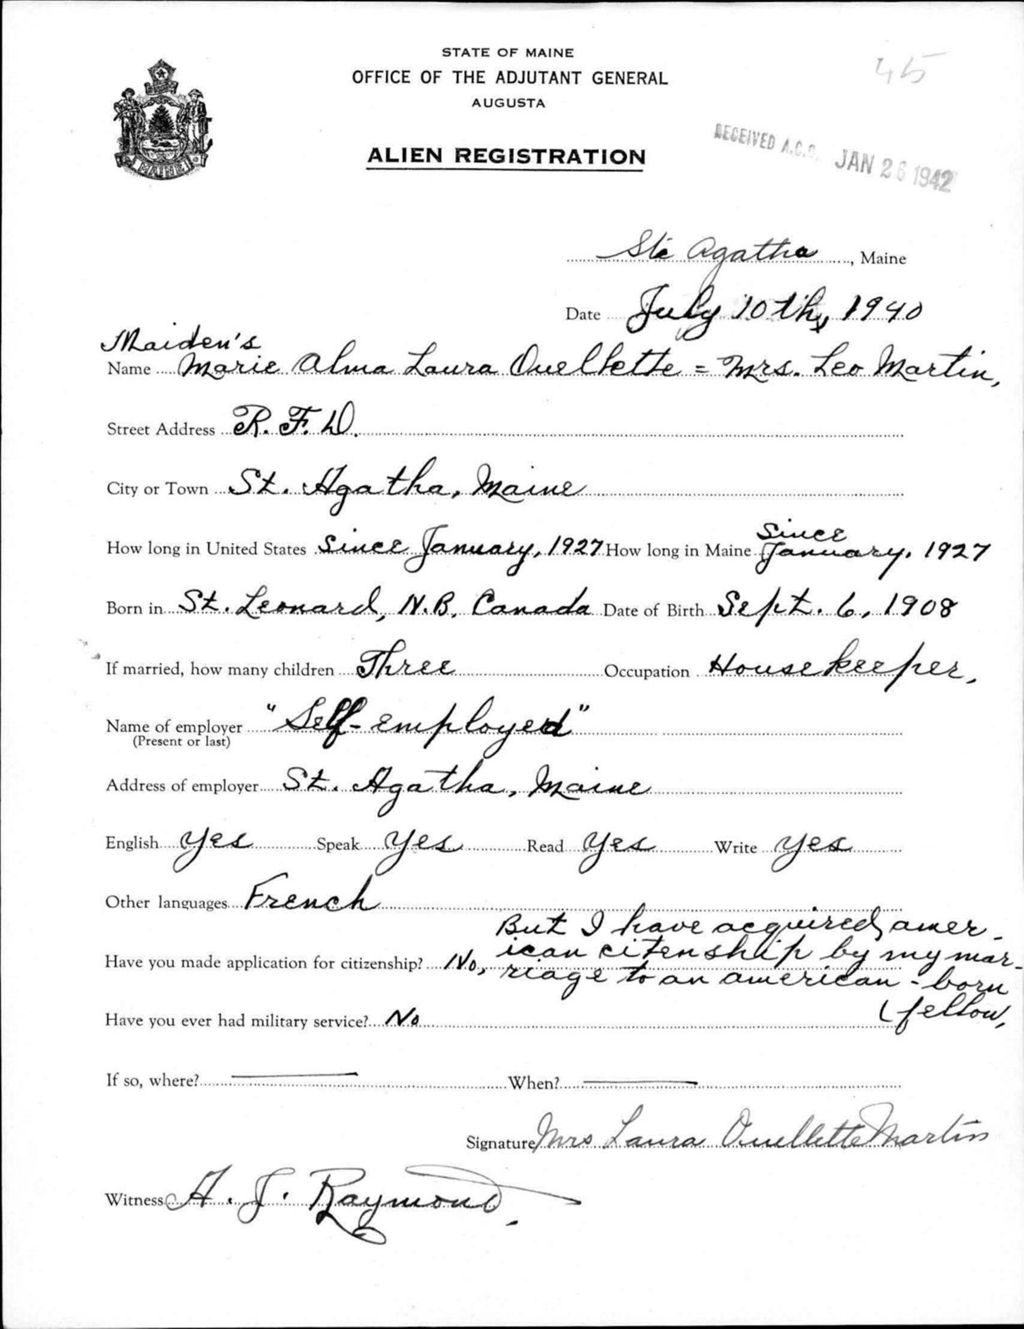 STATE OF MAINE
OFFICE OF THE ADJUTANT GENERAL
AUGUSTA
45
ALIEN REGISTRATION
RECEIVED A.G.O. JAN 26 1942
MAINE
Ste Agatha, Maine
Date July 10th, 1940
Maiden's
Name Marie Alma Laura Ouellette = Mrs. Leo Martin,
Street Address R. F. D.
City or Town St. Agatha, Maine
Since
How long in United States Since January, 1927 How long in Maine January, 1927
Born in St. Leonard, N.B. Canada Date of Birth Sept. 6, 1908
If married, how many children Three Occupation Housekeeper,
Name of employer "Self-employed"
(Present or last)
Address of employer St. Agatha, Maine
English Yes Speak Yes Read Yes Write Yes
Other languages French
But I have acquired amer-
ican citenship by my mar-
Have you made application for citizenship? No, riage to an american-born
fellow,
Have you ever had military service? No
If so, where? When?
Signature Mrs Laura Ouellette Martin
Witness A. J. Raymond.